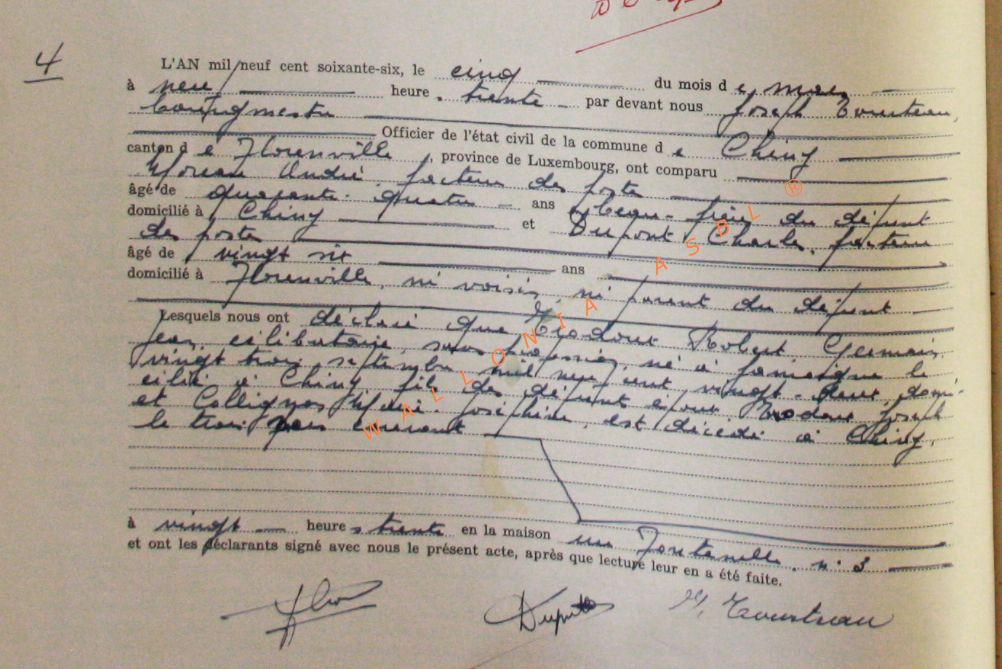 4
L'AN mil neuf cent soixante-six, le cinq du mois d e mars
à neuf heure s trente par devant nous Joseph Tourteau,
bourgmestre
Officier de l'état civil de la commune d e Chiny
canton d e Florenville, province de Luxembourg, ont comparu
Moreau André, facteur des postes
âgé de quarante-quatre ans, beau-frère du défunt
domicilié à Chiny et Dupont Charles, facteur
des postes
âgé de vingt six ans
domicilié à Florenville, ni voisin, ni parent du défunt
Lesquels nous ont déclaré que Robert, Germain,
Jean, célibataire, sans profession, né à Jamoigne le
vingt trois septembre mil neuf cent vingt-deux, domi-
cilié à Chiny, fils des défunts époux Joseph
et Collignon Marie-Joséphine, est décédé à Chiny,
le trois mars courant
à vingt heure s trente en la maison rue Fontenelle, n° 3
et ont les déclarants signé avec nous le présent acte, après que lecture leur en a été faite.
WALLONIA ASBL ®